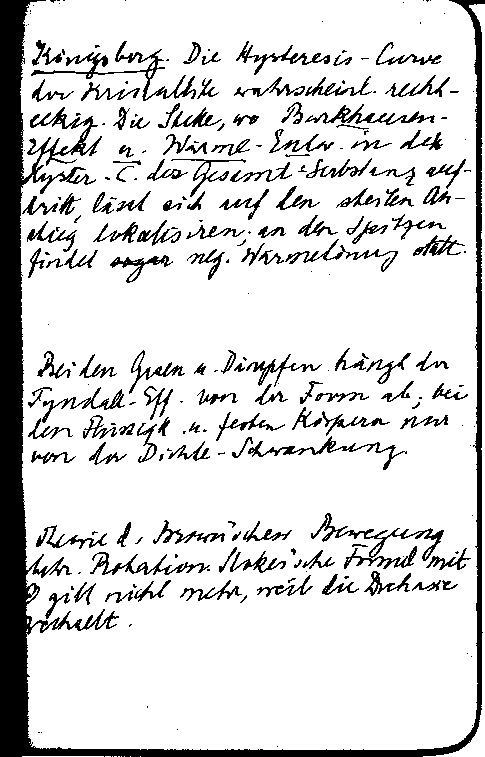 Königsberg. Die Hysteresis-Curve
der Kristallite wahrscheinl. recht-
eckig. Die Stelle, wo Barkhausen-
Effekt u. Wärme-Entw. in der
Hyster.-C. der Gesamt-Substanz auf-
tritt, lässt sich auf den steilen An-
stieg lokalisiren; an den Spitzen
findet sogar neg. Wärmetönung statt.
Bei den Gasen u. Dämpfen hängt der
Tyndall-Eff. von der Form ab; bei
den Flüssigk. u. festen Körpern nur
von der Dichte-Schwankung.
Theorie d. Brown'schen Bewegung
Rotation. Stokes'sche Formel mit
gilt nicht mehr, weil die Drehaxe
wechselt.